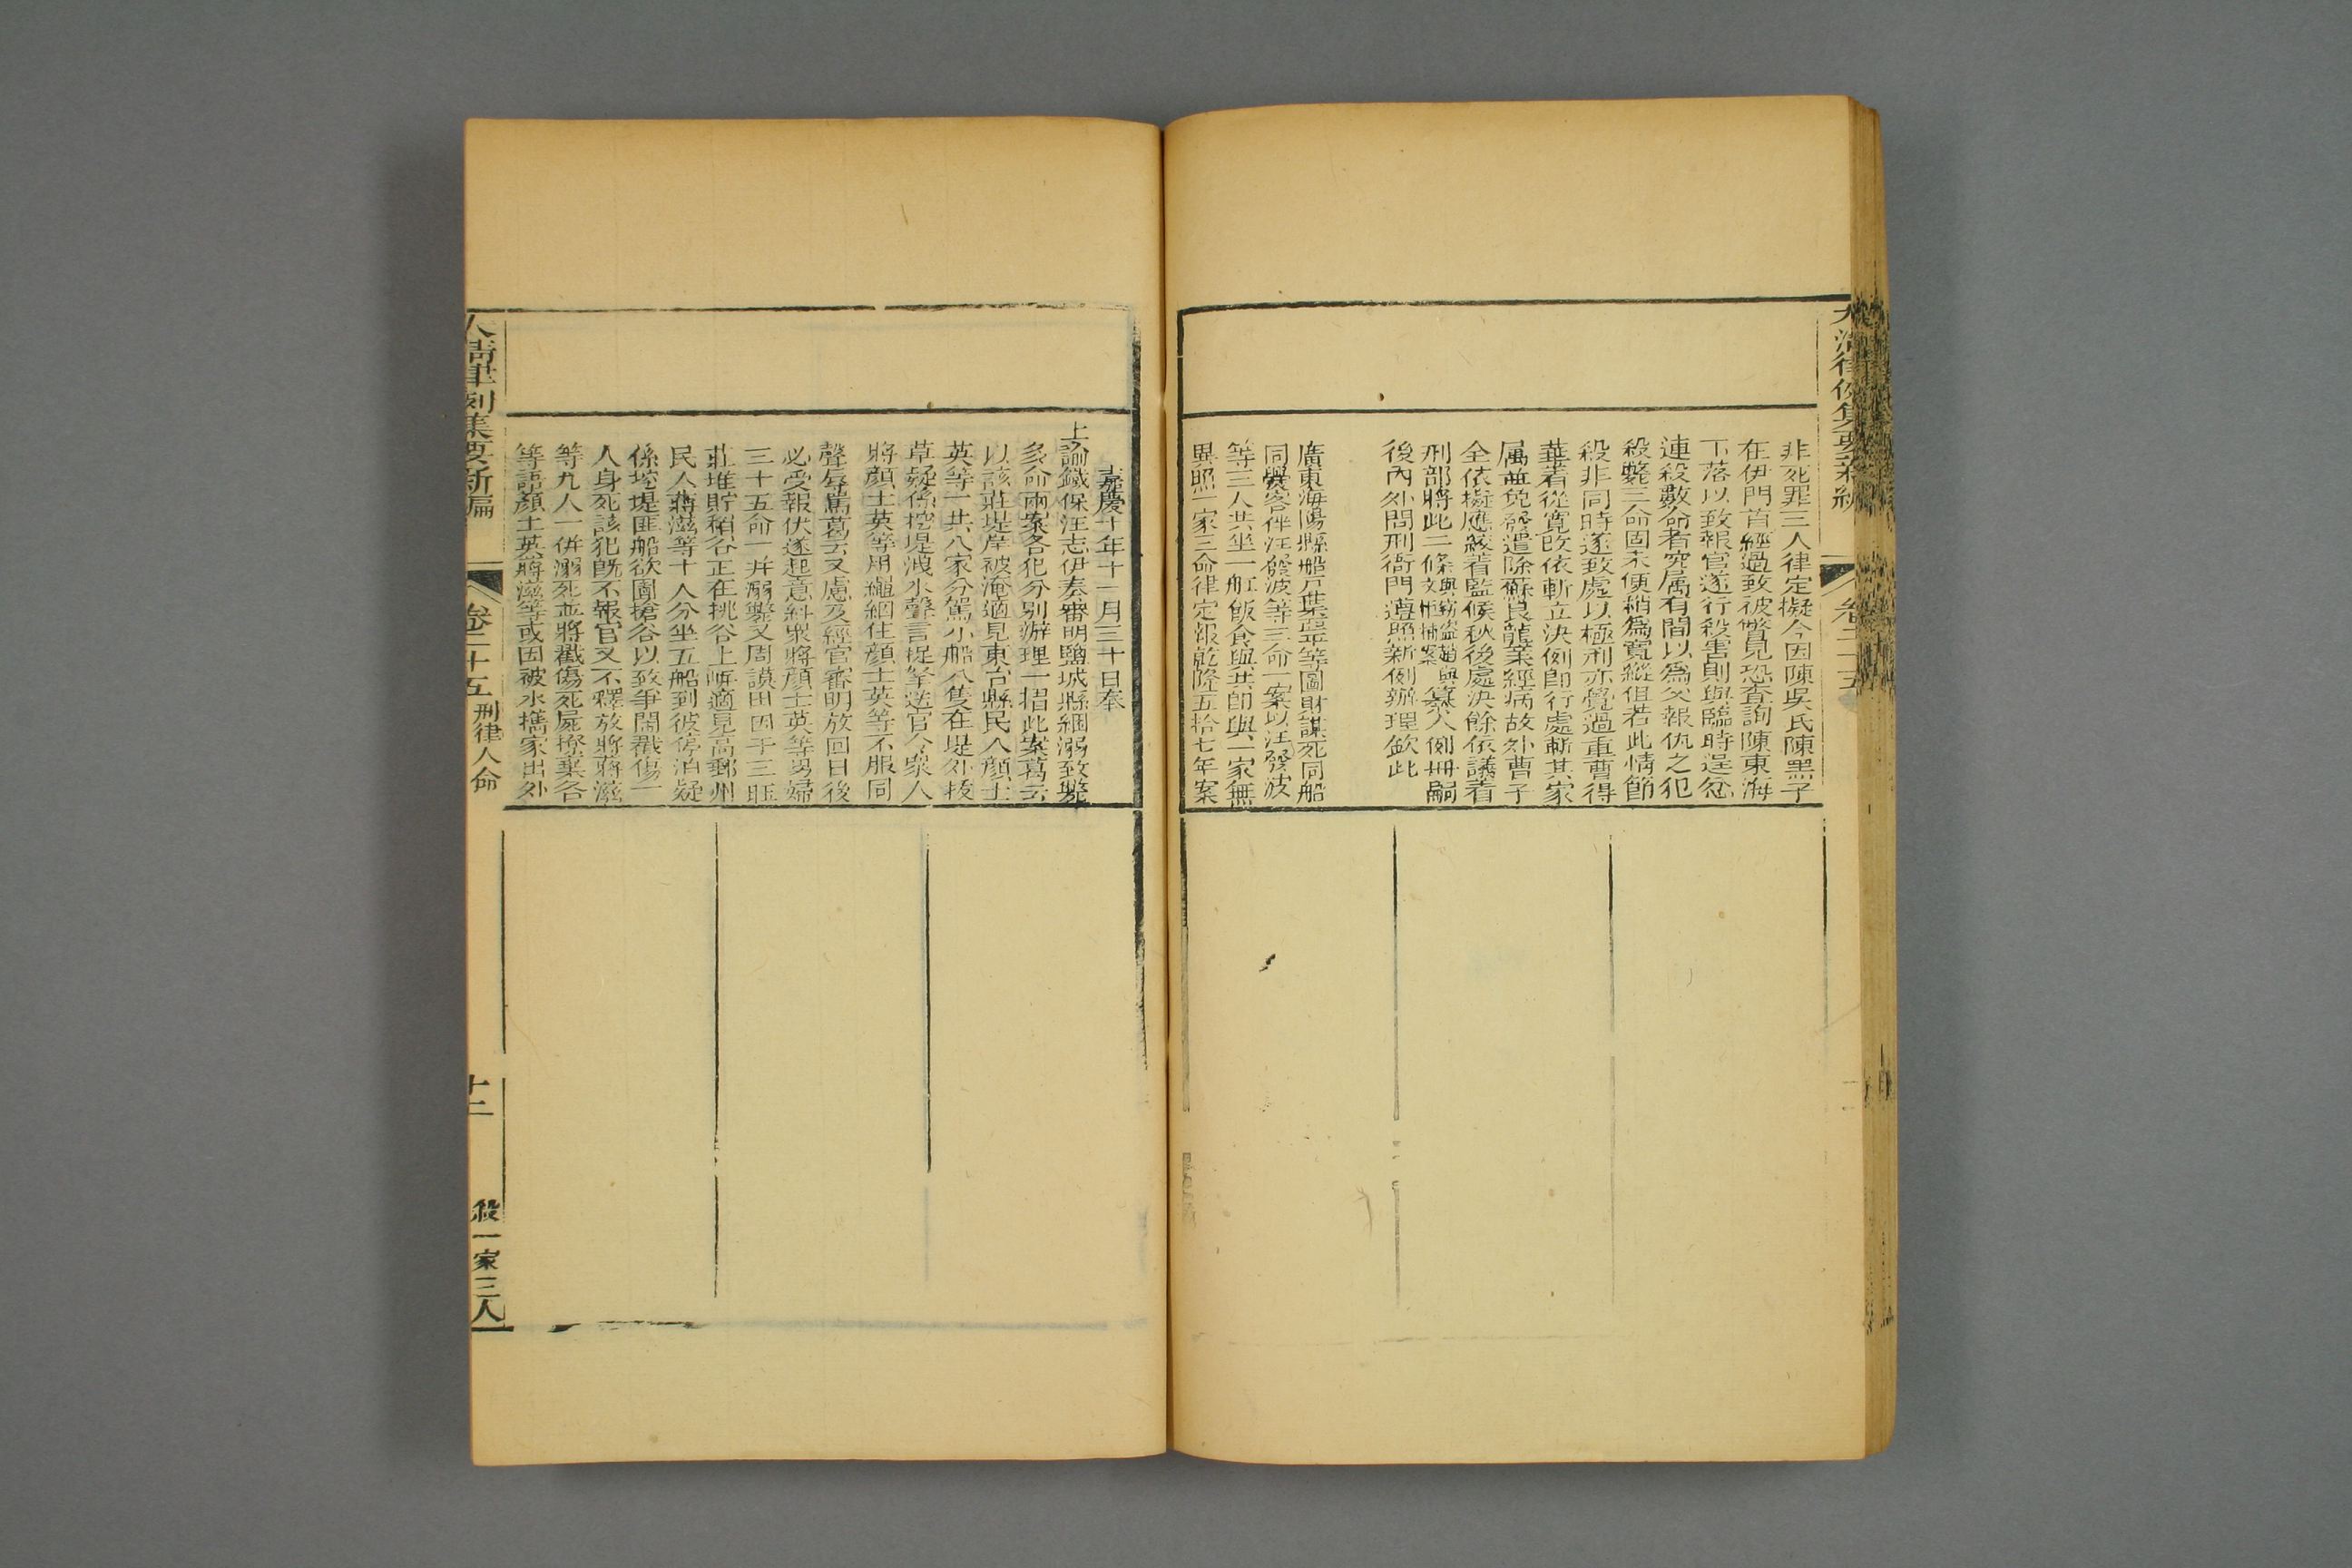 大清律例集要新編
卷二十五
非死罪三人律定擬今因陳吳氏陳黑子
在伊門首經過致被瞥見恐查詢陳東海
下落以致報官遂行殺害則與臨時逞忿
連殺數命者究属有間以為父報仇之犯
殺斃三命固未便稍為寬縱但若此情節
殺非同時遂致處以極刑亦覺過重曹得
華著從寬改依斬立決例即行處斬其家
属並免發遣除蘇良龍業經病故外曹子
全依擬應絞著監候秋後處決餘依議着
刑部將此二條纂入例冊嗣
後內外問刑衙門遵照新例辦理欽此
廣東海陽縣船戶葉呈平等圖財謀死同船
同爨客伴汪發波等三命一案以汪發波
等三人共坐一船飯食與共即與一家無
異照一家三命律定報乾隆五拾七年案
嘉慶十年十一月三十日奉
上諭鐵保汪志伊奏審明鹽城縣綑溺致斃
多命兩案各犯分別辦理一摺此案葛云
以該莊堤岸被淹適見東台縣民人顔士
英等一共八家分駕小船八隻在堤外拔
草疑係挖堤洩水聲言捉拏送官令衆人
將顔士英等用繩綑住顔士英等不服同
聲辱罵葛云又慮及經官審明放回日後
必受報伏遂起意糾衆將顔士英等男婦
三十五命一并溺斃又周謨田因于三旺
莊堆貯稻谷正在挑谷上岸適見高郵州
民人蔣滋等十人分坐五船到彼停泊疑
係挖堤匪船欲圖搶谷以致爭鬧戳傷一
人身死該犯旣不報官又不釋放將蔣滋
等九人一併溺死並將戳傷死屍撩棄各
等語顔士英蔣滋等或因被水攜家出外
大清律例集要新編
卷二十五 刑律人命
十二
殺一家三人